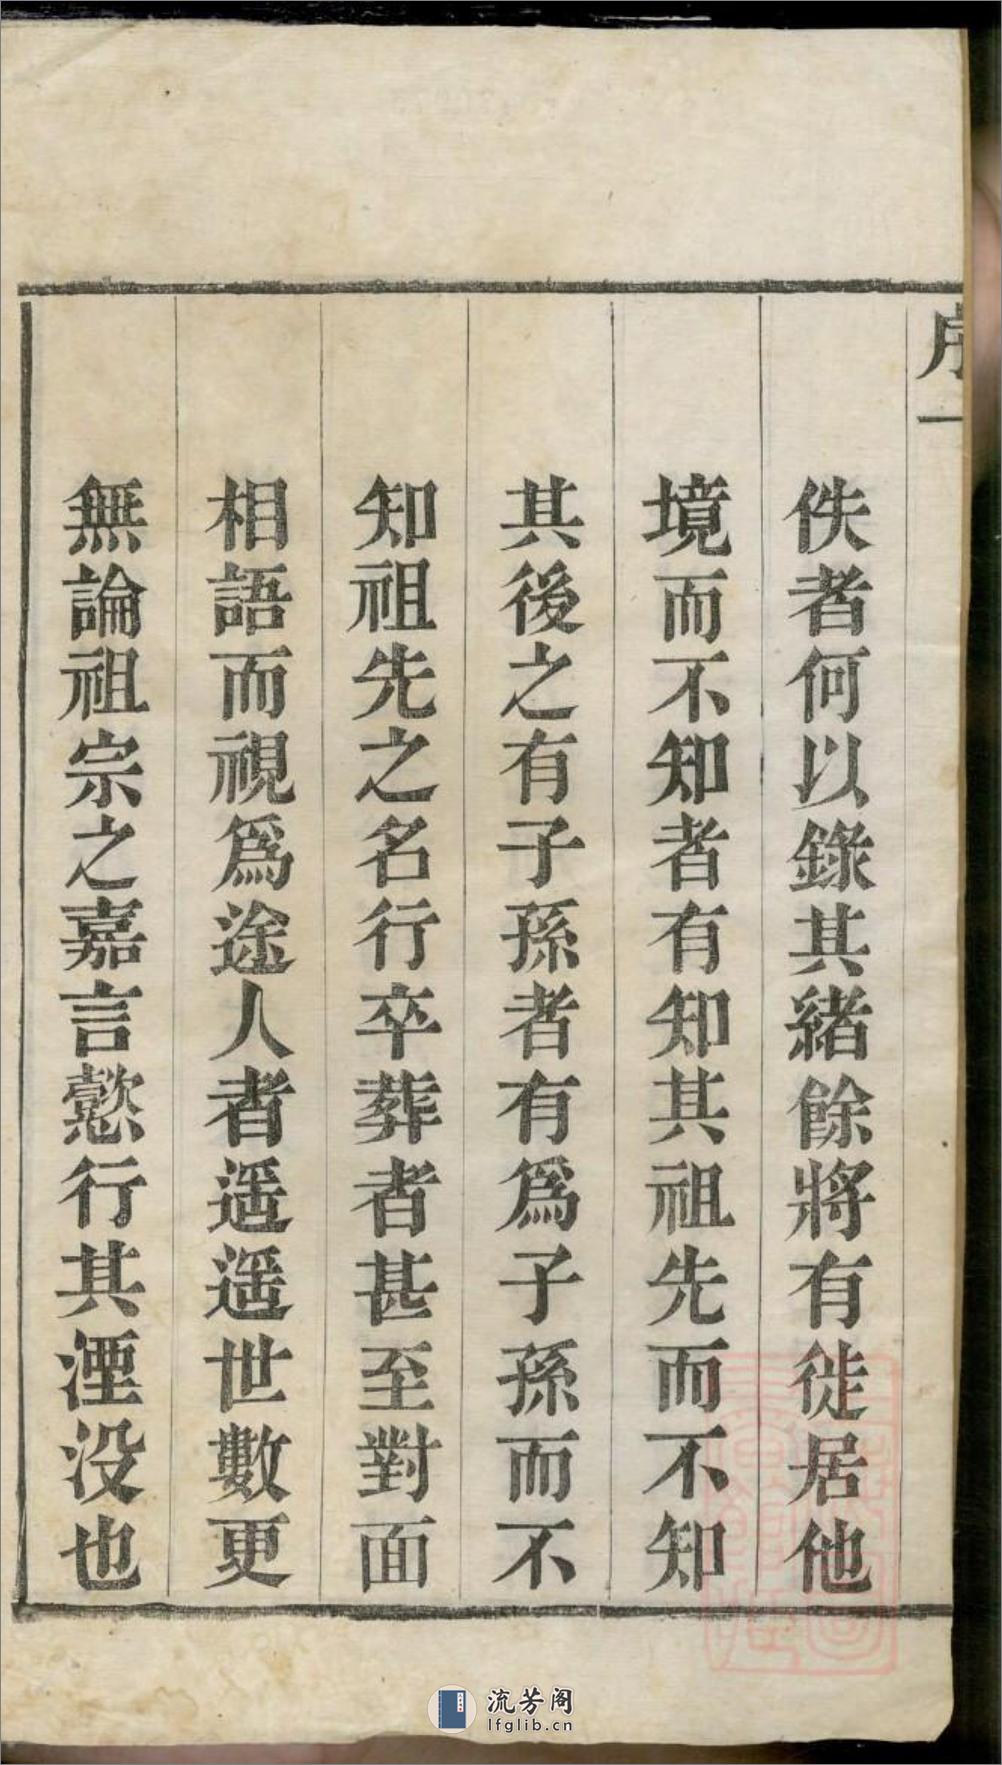 序一
佚者何以錄其緒餘將有徙居他
境而不知者有知其祖先而不知
其後之有子孫者有爲子孫而不
知祖先之名行卒葬者甚至對面
相語而視爲途人者遥遥世數更
無論祖宗之嘉言懿行其湮没也
流芳阁
lfglib.cn